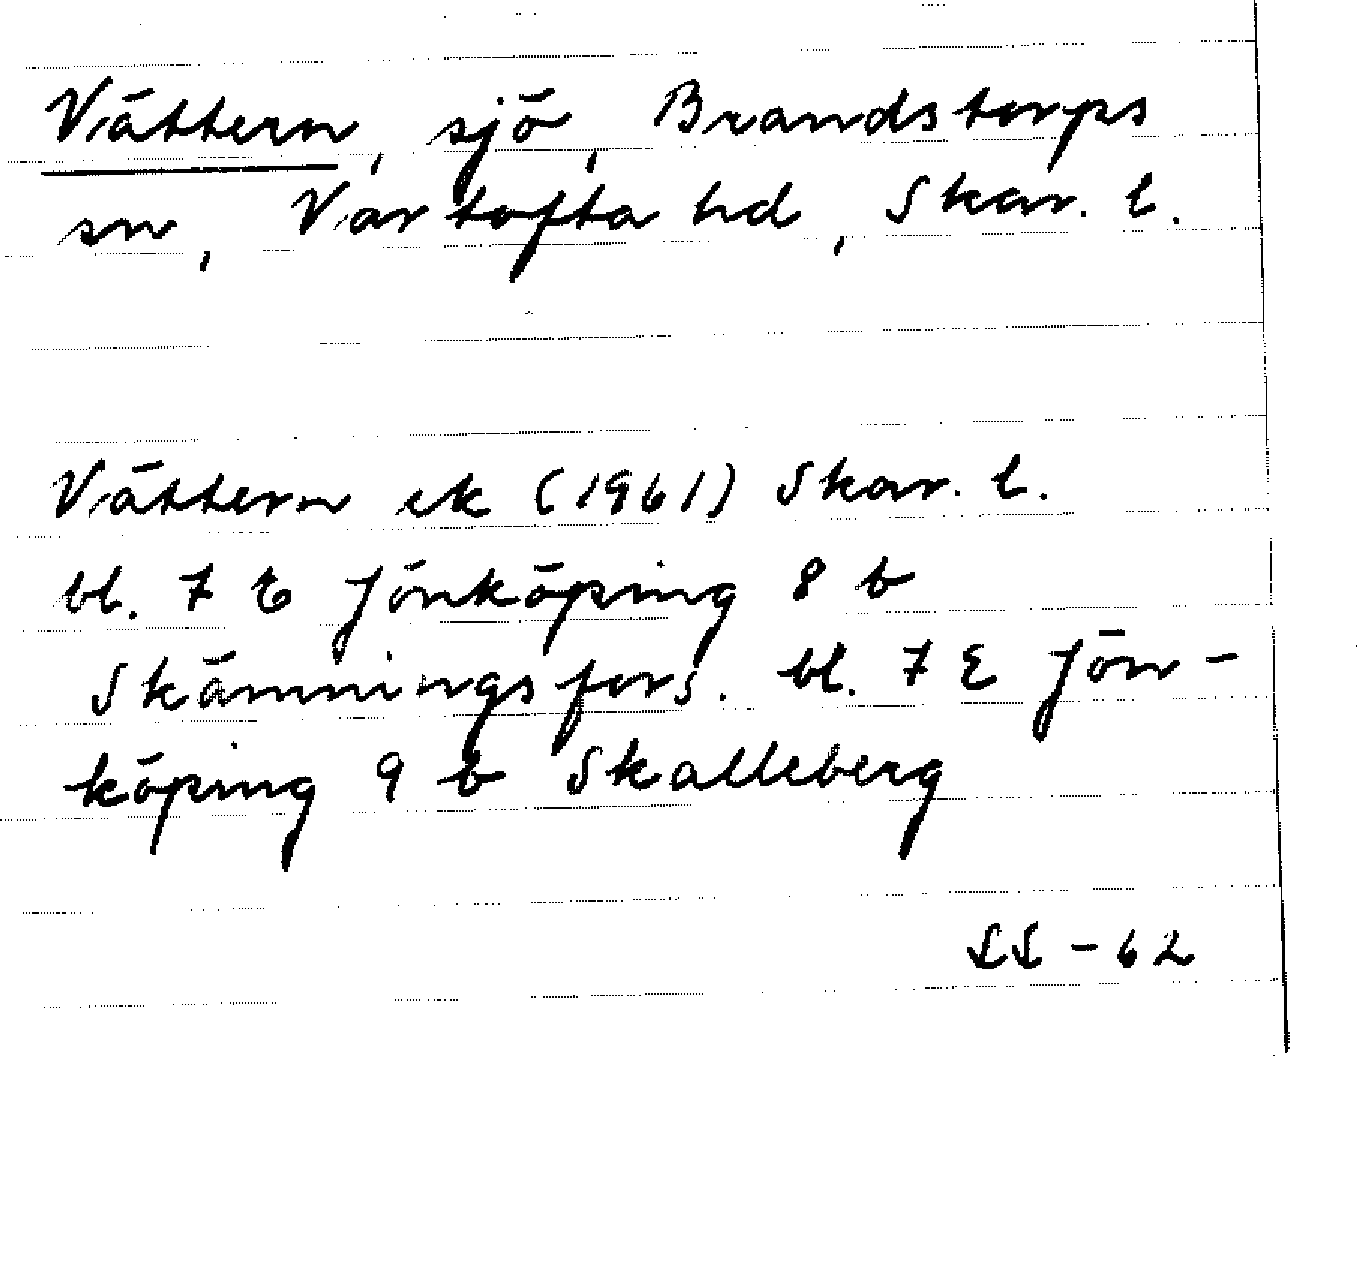 Vättern, sjö, Brandstorps
sn, Vartofta hd, Skar. l.
Vättern ek (1961) Skar. l.
bl. 7 E Jönköping 8 b
Skämningsfors. bl. 7 E Jön-
köping 9 b Skalleberg
SS - 62